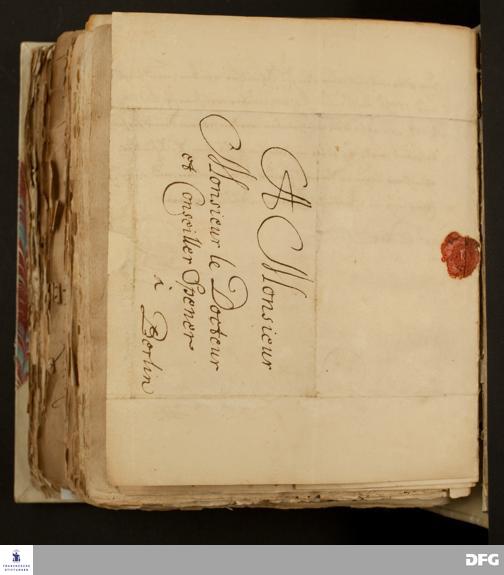 A Monsieur
Monsieur le Docteur
et Conseiller Spener
à Berlin
FRANCKESCHE
STIFTUNGEN
DFG